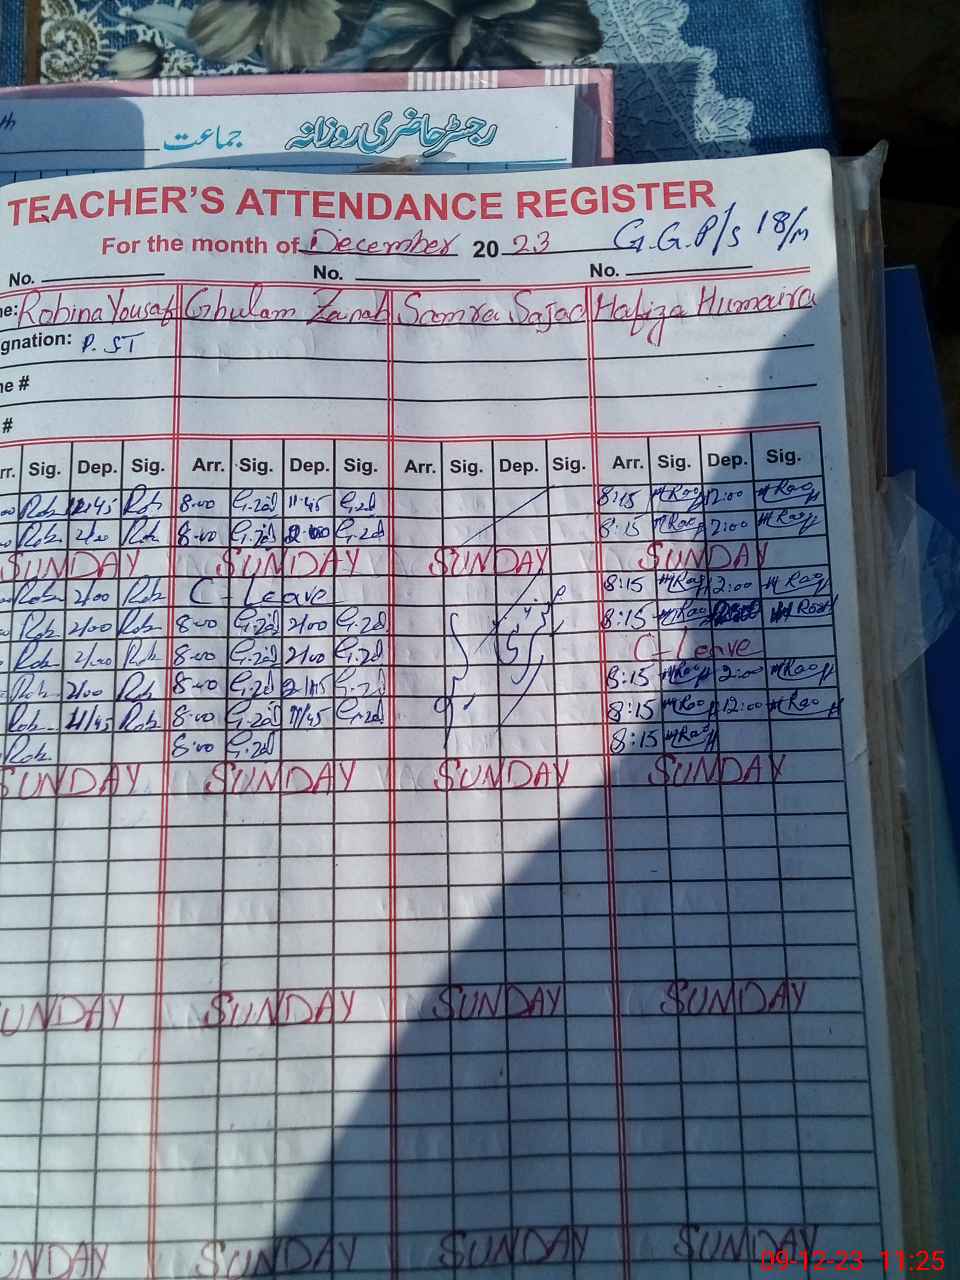 رجسٹر حاضری روزانہ جماعت
TEACHER'S ATTENDANCE REGISTER
For the month of December 2023 G.G.P/S 18/m
No. No. No.
ne: Robina Yousaf Ghulam Zanab Samra Sajad Hafiza Humaira
gnation: P.ST
ne #
#
rr. Sig. Dep. Sig. Arr. Sig. Dep. Sig. Arr. Sig. Dep. Sig. Arr. Sig. Dep. Sig.
Rob 11:45 Rob 8:00 G.zd 11:45 G.zd 8:15 12:00
Rob 2/00 Rob 8:00 G.zd 2:00 G.zd 8:15 2:00
SUNDAY SUNDAY SUNDAY SUNDAY
Rob 2/00 Rob C-Leave 8:15 2:00
Rob 2/00 Rob 8:00 G.zd 2/00 G.zd 8:15
Rob 2/00 Rob 8:00 G.zd 2/00 G.zd C-Leave
Rob 2/00 Rob 8:00 G.zd G.zd 8:15 2:00
Rob 11/45 Rob 8:00 G.zd 11/45 G.zd 8:15 12:00
Rob 8:00 G.zd 8:15
SUNDAY SUNDAY SUNDAY SUNDAY
UNDAY SUNDAY SUNDAY SUNDAY
UNDAY SUNDAY SUNDAY SUNDAY
09-12-23 11:25